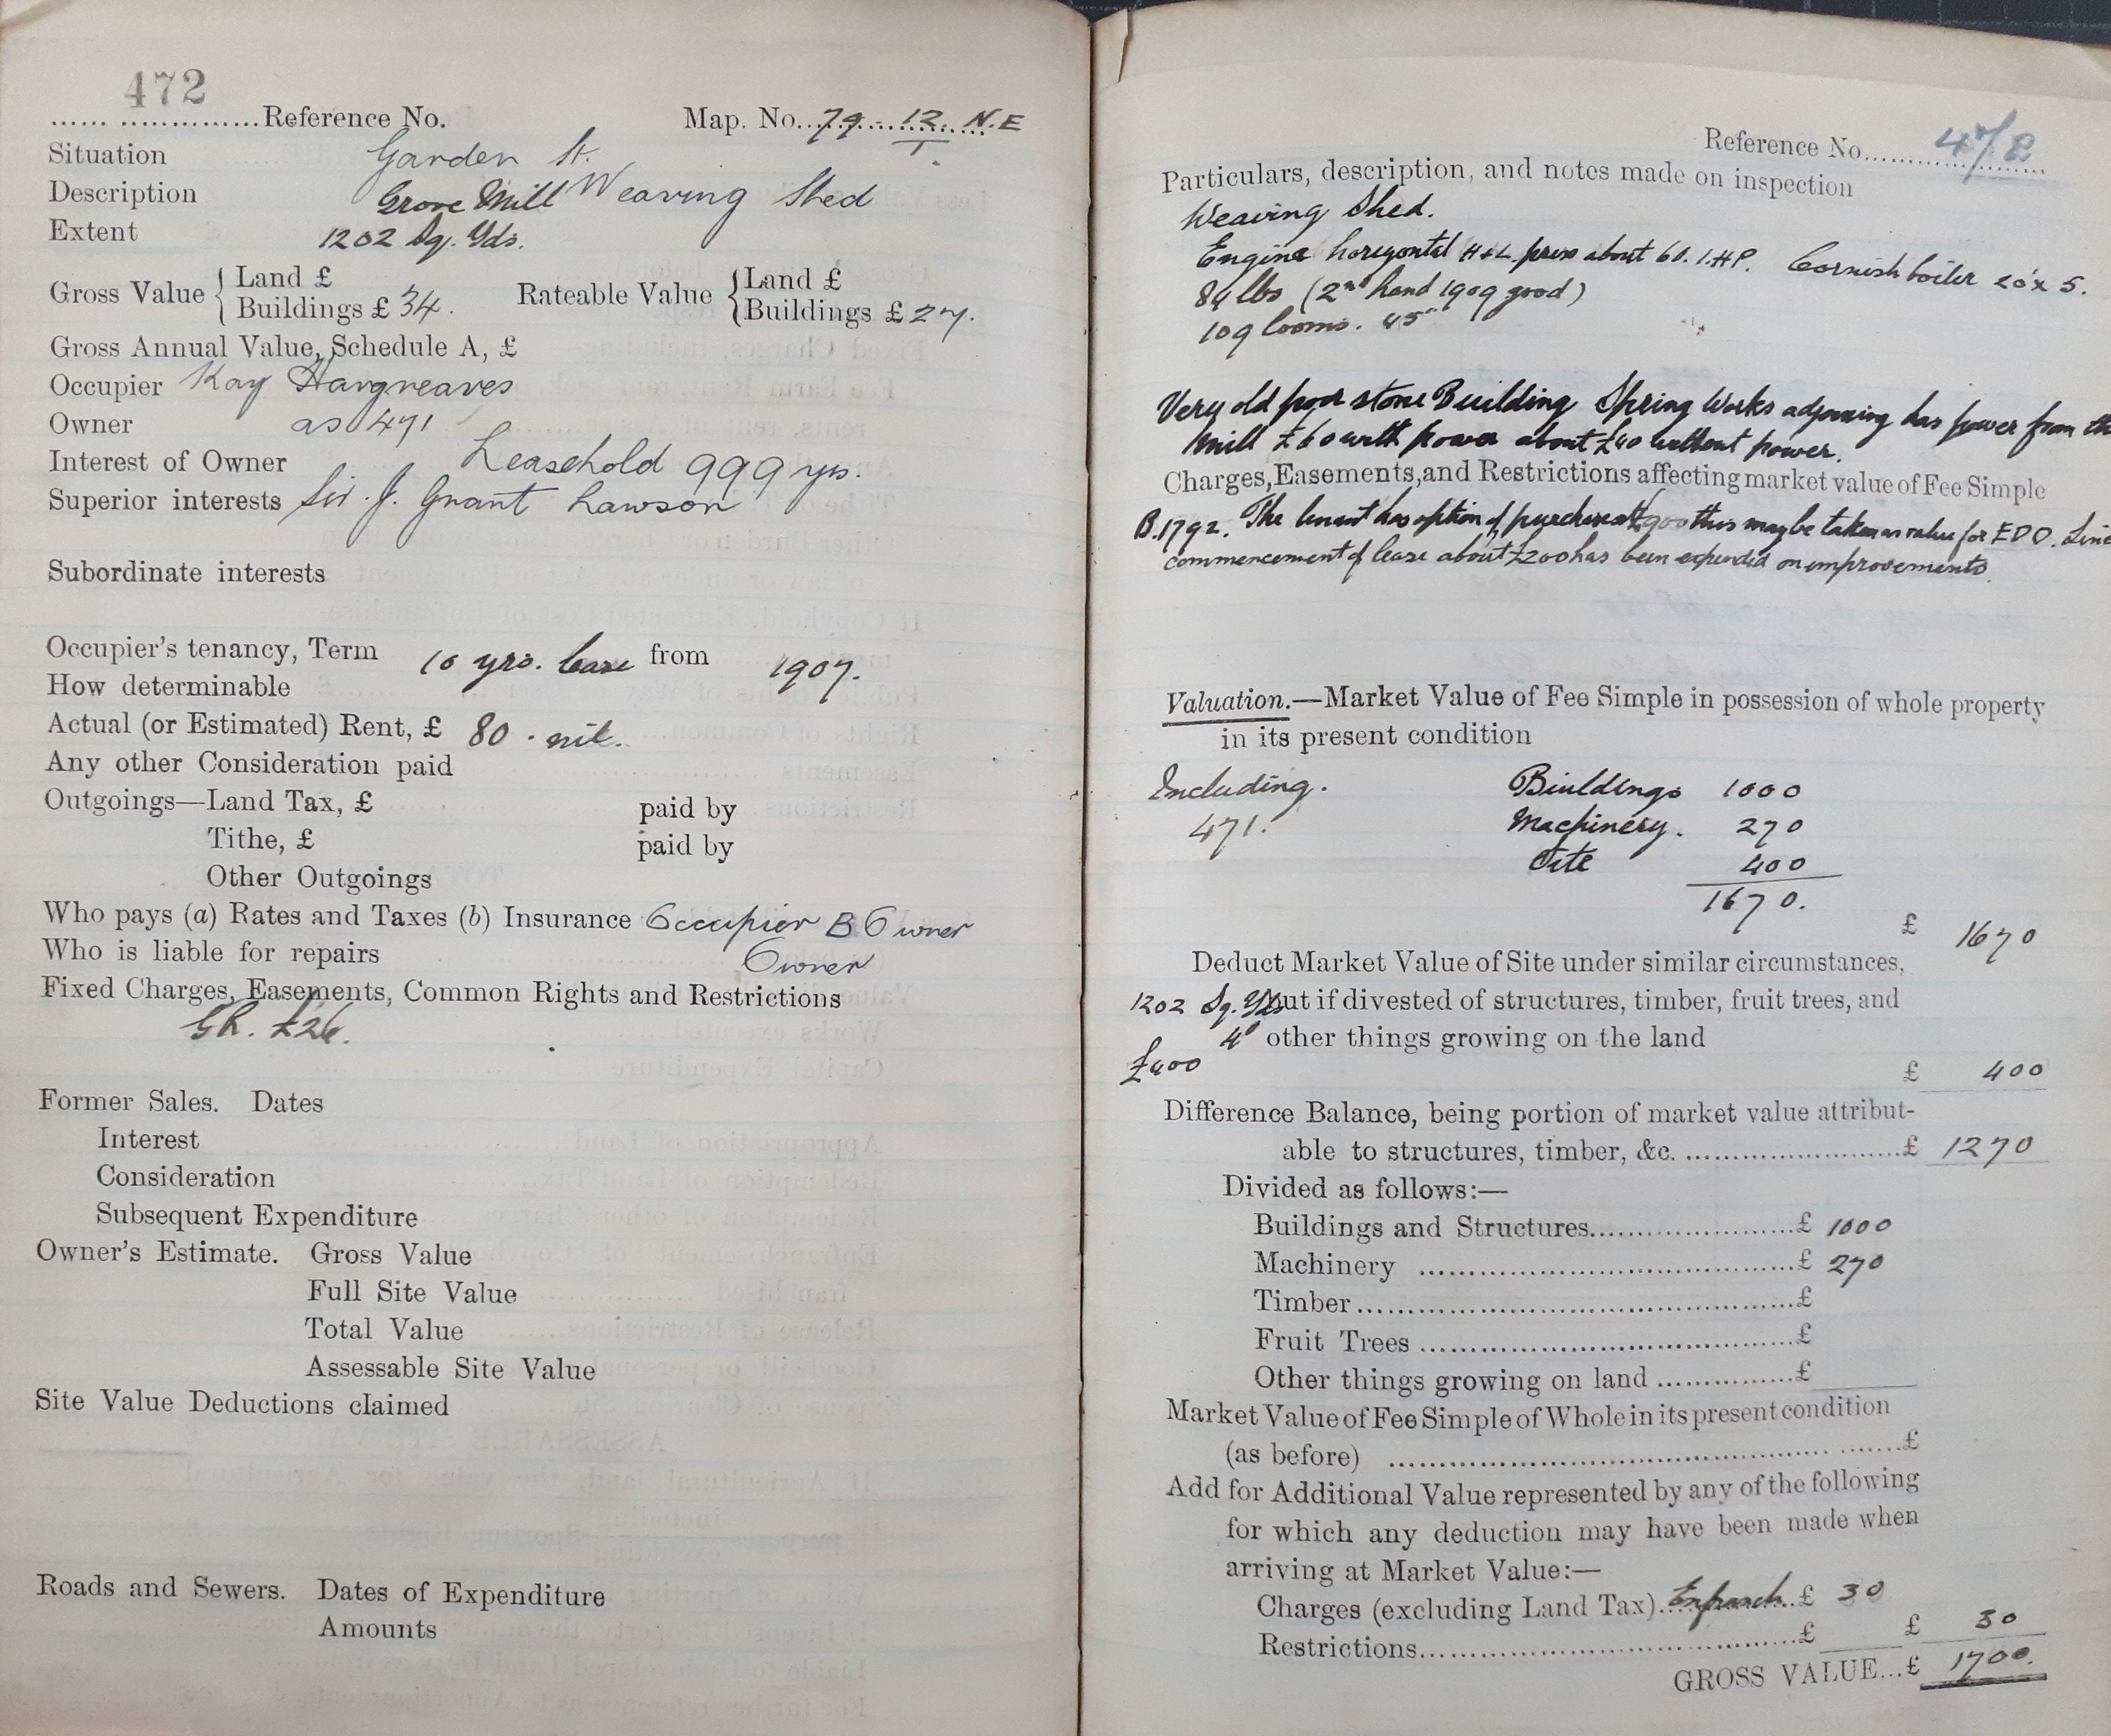 472
...... ..............Reference No. Map. No. 79-12. N.E
1
Situation Garden St.
Description Grove Mill Weaving Shed
Extent 1202 Sq. Yds.
Gross Value { Land £ Rateable Value { Land £
Buildings £ 34. Buildings £ 27.
Gross Annual Value, Schedule A, £
Occupier Kay Hargreaves
Owner as 471
Interest of Owner Leasehold 999 yrs.
Superior interests Sir. J. Grant Lawson
Subordinate interests
Occupier's tenancy, Term 10 yrs. lease from 1907.
How determinable
Actual (or Estimated) Rent, £ 80 . nil.
Any other Consideration paid
Outgoings—Land Tax, £ paid by
Tithe, £ paid by
Other Outgoings
Who pays (a) Rates and Taxes (b) Insurance Occupier B Owner
Who is liable for repairs Owner
Fixed Charges, Easements, Common Rights and Restrictions
GR. £26.
Former Sales. Dates
Interest
Consideration
Subsequent Expenditure
Owner's Estimate. Gross Value
Full Site Value
Total Value
Assessable Site Value
Site Value Deductions claimed
Roads and Sewers. Dates of Expenditure
Amounts
Reference No. 472
Particulars, description, and notes made on inspection
Weaving Shed.
Engine horizontal H & L press about 60. I.HP. Cornish boiler 20' x 5.
84 lbs (2nd hand 1909 good)
109 looms. 45"
Very old poor stone Building Spring Works adjoining has power from th
mill £60 with power about £40 without power.
Charges, Easements, and Restrictions affecting market value of Fee Simple
B.1792. The tenant has option of purchase at £900 this may be taken as value for EDO. Sinc
commencement of lease about £200 has been expended on improvements.
Valuation.—Market Value of Fee Simple in possession of whole property
in its present condition
Including. Buildings 1000
471. Machinery. 270
Site 400
1670.
£ 1670
Deduct Market Value of Site under similar circumstances,
1202 Sq. Yds but if divested of structures, timber, fruit trees, and
4d other things growing on the land
£400 £ 400
Difference Balance, being portion of market value attribut-
able to structures, timber, &c. ........................£ 1270
Divided as follows:—
Buildings and Structures........................£ 1000
Machinery ........................£ 270
Timber........................£
Fruit Trees ........................£
Other things growing on land ...............£
Market Value of Fee Simple of Whole in its present condition
(as before) ........................£
Add for Additional Value represented by any of the following
for which any deduction may have been made when
arriving at Market Value:—
Charges (excluding Land Tax) Enfranch. £ 30
Restrictions........................£ £ 30
GROSS VALUE...£ 1700.